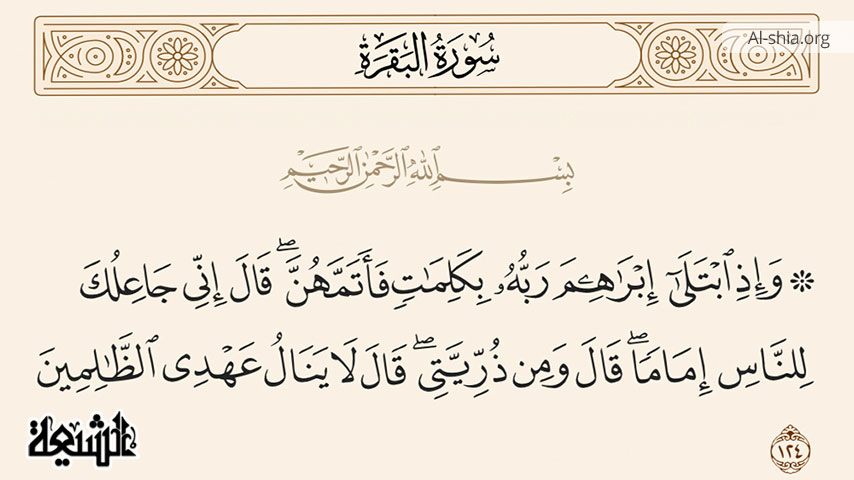 Al-shia.org
سُورَةُ البَقَرَةِ
بِسْمِ ٱللَّهِ ٱلرَّحْمَٰنِ ٱلرَّحِيمِ
۞ وَإِذِ ٱبْتَلَىٰٓ إِبْرَٰهِـۧمَ رَبُّهُۥ بِكَلِمَٰتٍ فَأَتَمَّهُنَّۖ قَالَ إِنِّي جَاعِلُكَ
لِلنَّاسِ إِمَامٗاۖ قَالَ وَمِن ذُرِّيَّتِيۖ قَالَ لَا يَنَالُ عَهْدِي ٱلظَّٰلِمِينَ
١٢٤
الشيعة